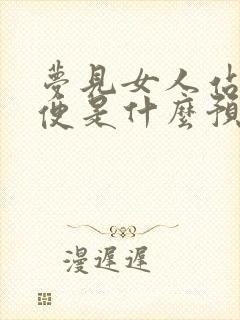 夢見女人佔
便是什麼預
漫遲遲